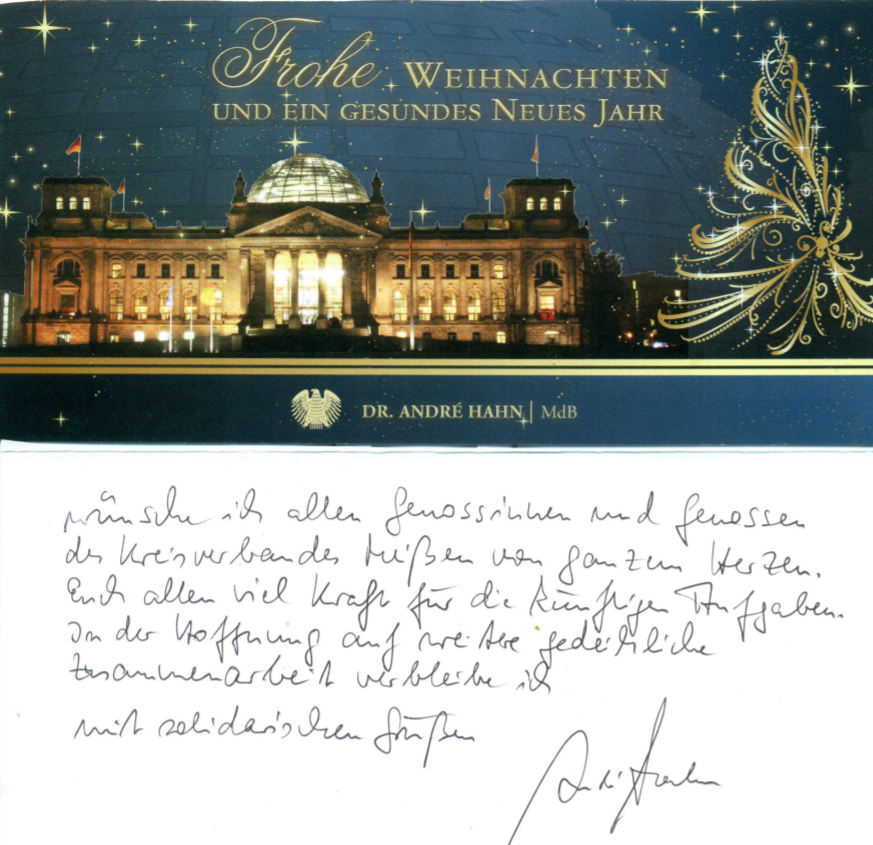 Frohe WEIHNACHTEN
UND EIN GESUNDES NEUES JAHR
DR. ANDRÉ HAHN | MdB
wünsche ich allen Genossinnen und Genossen
des Kreisverbandes Meißen von ganzem Herzen.
Euch allen viel Kraft für die künftigen Aufgaben.
In der Hoffnung auf weitere gedeihliche
Zusammenarbeit verbleibe ich
mit solidarischen Grüßen
André Hahn